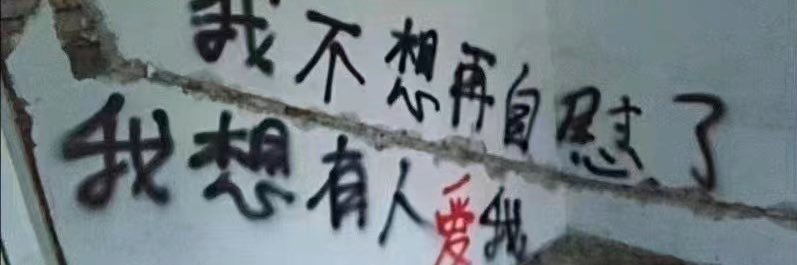 我不想再自慰了
我想有人爱我